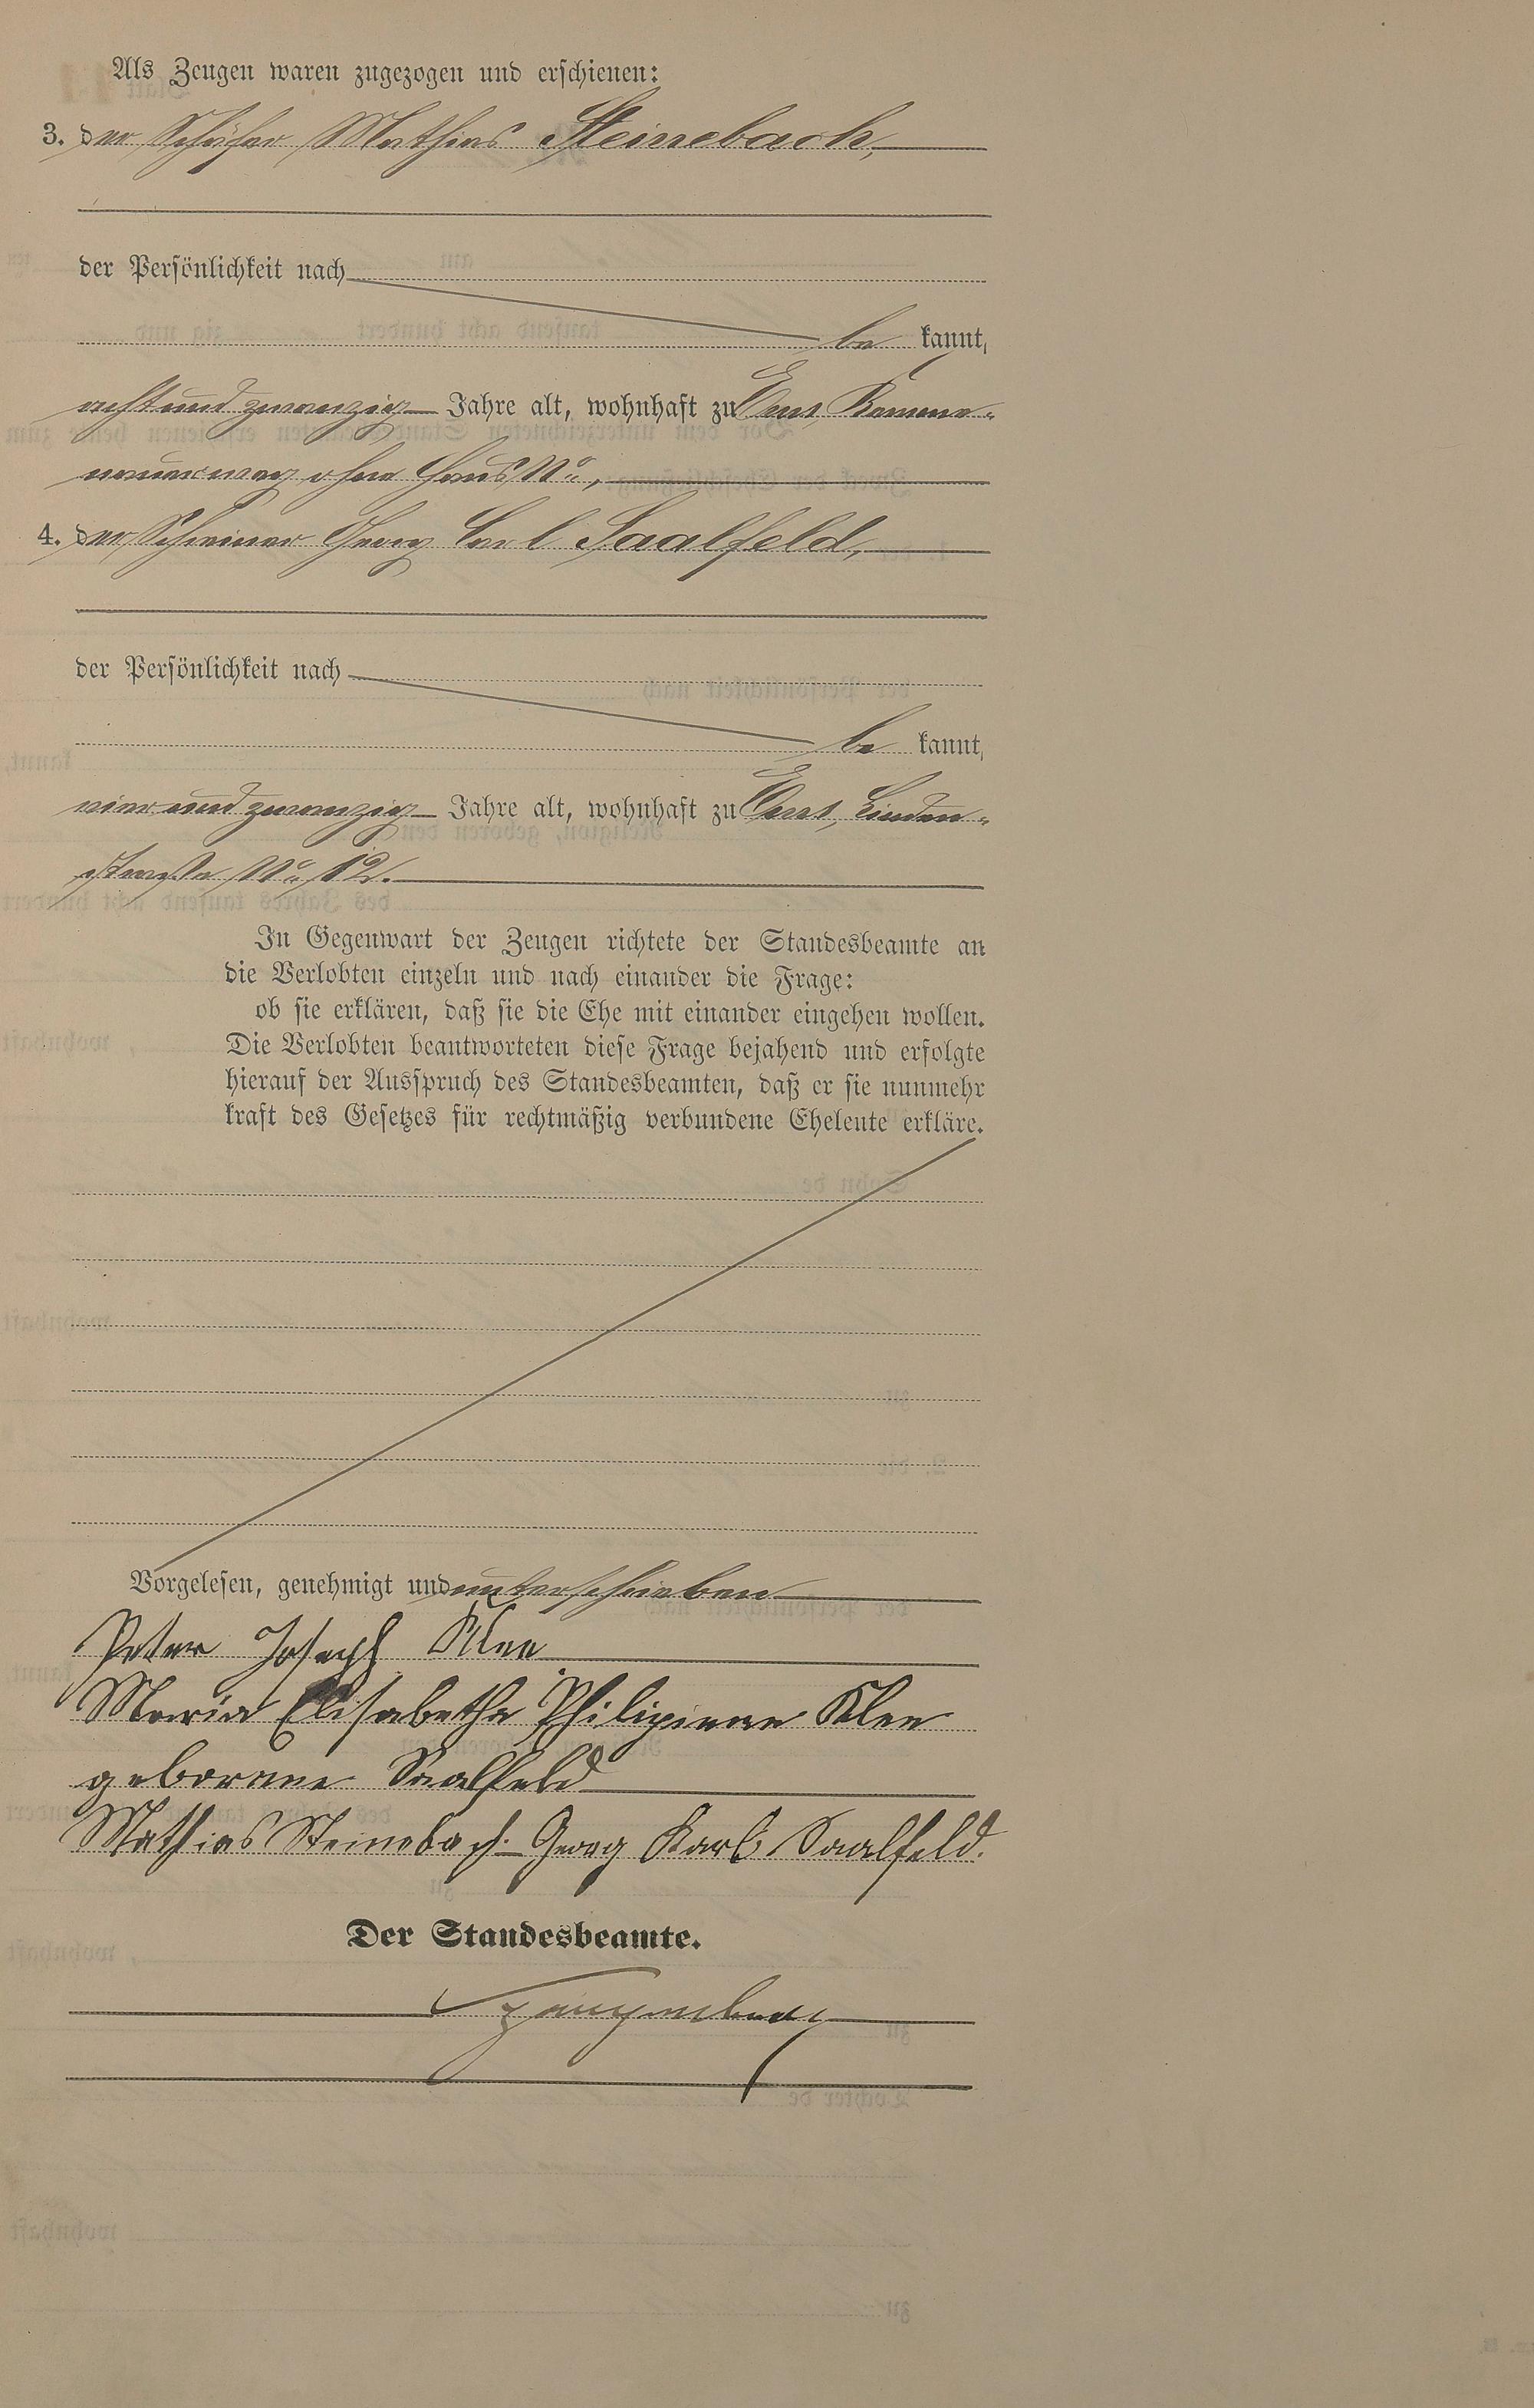 Als Zeugen waren zugezogen und erschienen:
3. der Schäfer Mathias Steinebach,
der Persönlichkeit nach
be kannt,
acht und zwanzig Jahre alt, wohnhaft zu Ems, Kemme-
nauerweg ohne Haus No,
4. der Schreiner Georg Carl Saalfeld,
der Persönlichkeit nach
be kannt,
vier und zwanzig Jahre alt, wohnhaft zu Ems, Linden-
straße No 12.
In Gegenwart der Zeugen richtete der Standesbeamte an
die Verlobten einzeln und nach einander die Frage:
ob sie erklären, daß sie die Ehe mit einander eingehen wollen.
Die Verlobten beantworteten diese Frage bejahend und erfolgte
hierauf der Ausspruch des Standesbeamten, daß er sie nunmehr
kraft des Gesetzes für rechtmäßig verbundene Eheleute erkläre.
Vorgelesen, genehmigt und unterschrieben
Peter Joseph Klee
Maria Elisabetha Philipinne Klee
geborene Saalfeld
Mathias Steinebach. Georg Karl Saalfeld.
Der Standesbeamte.